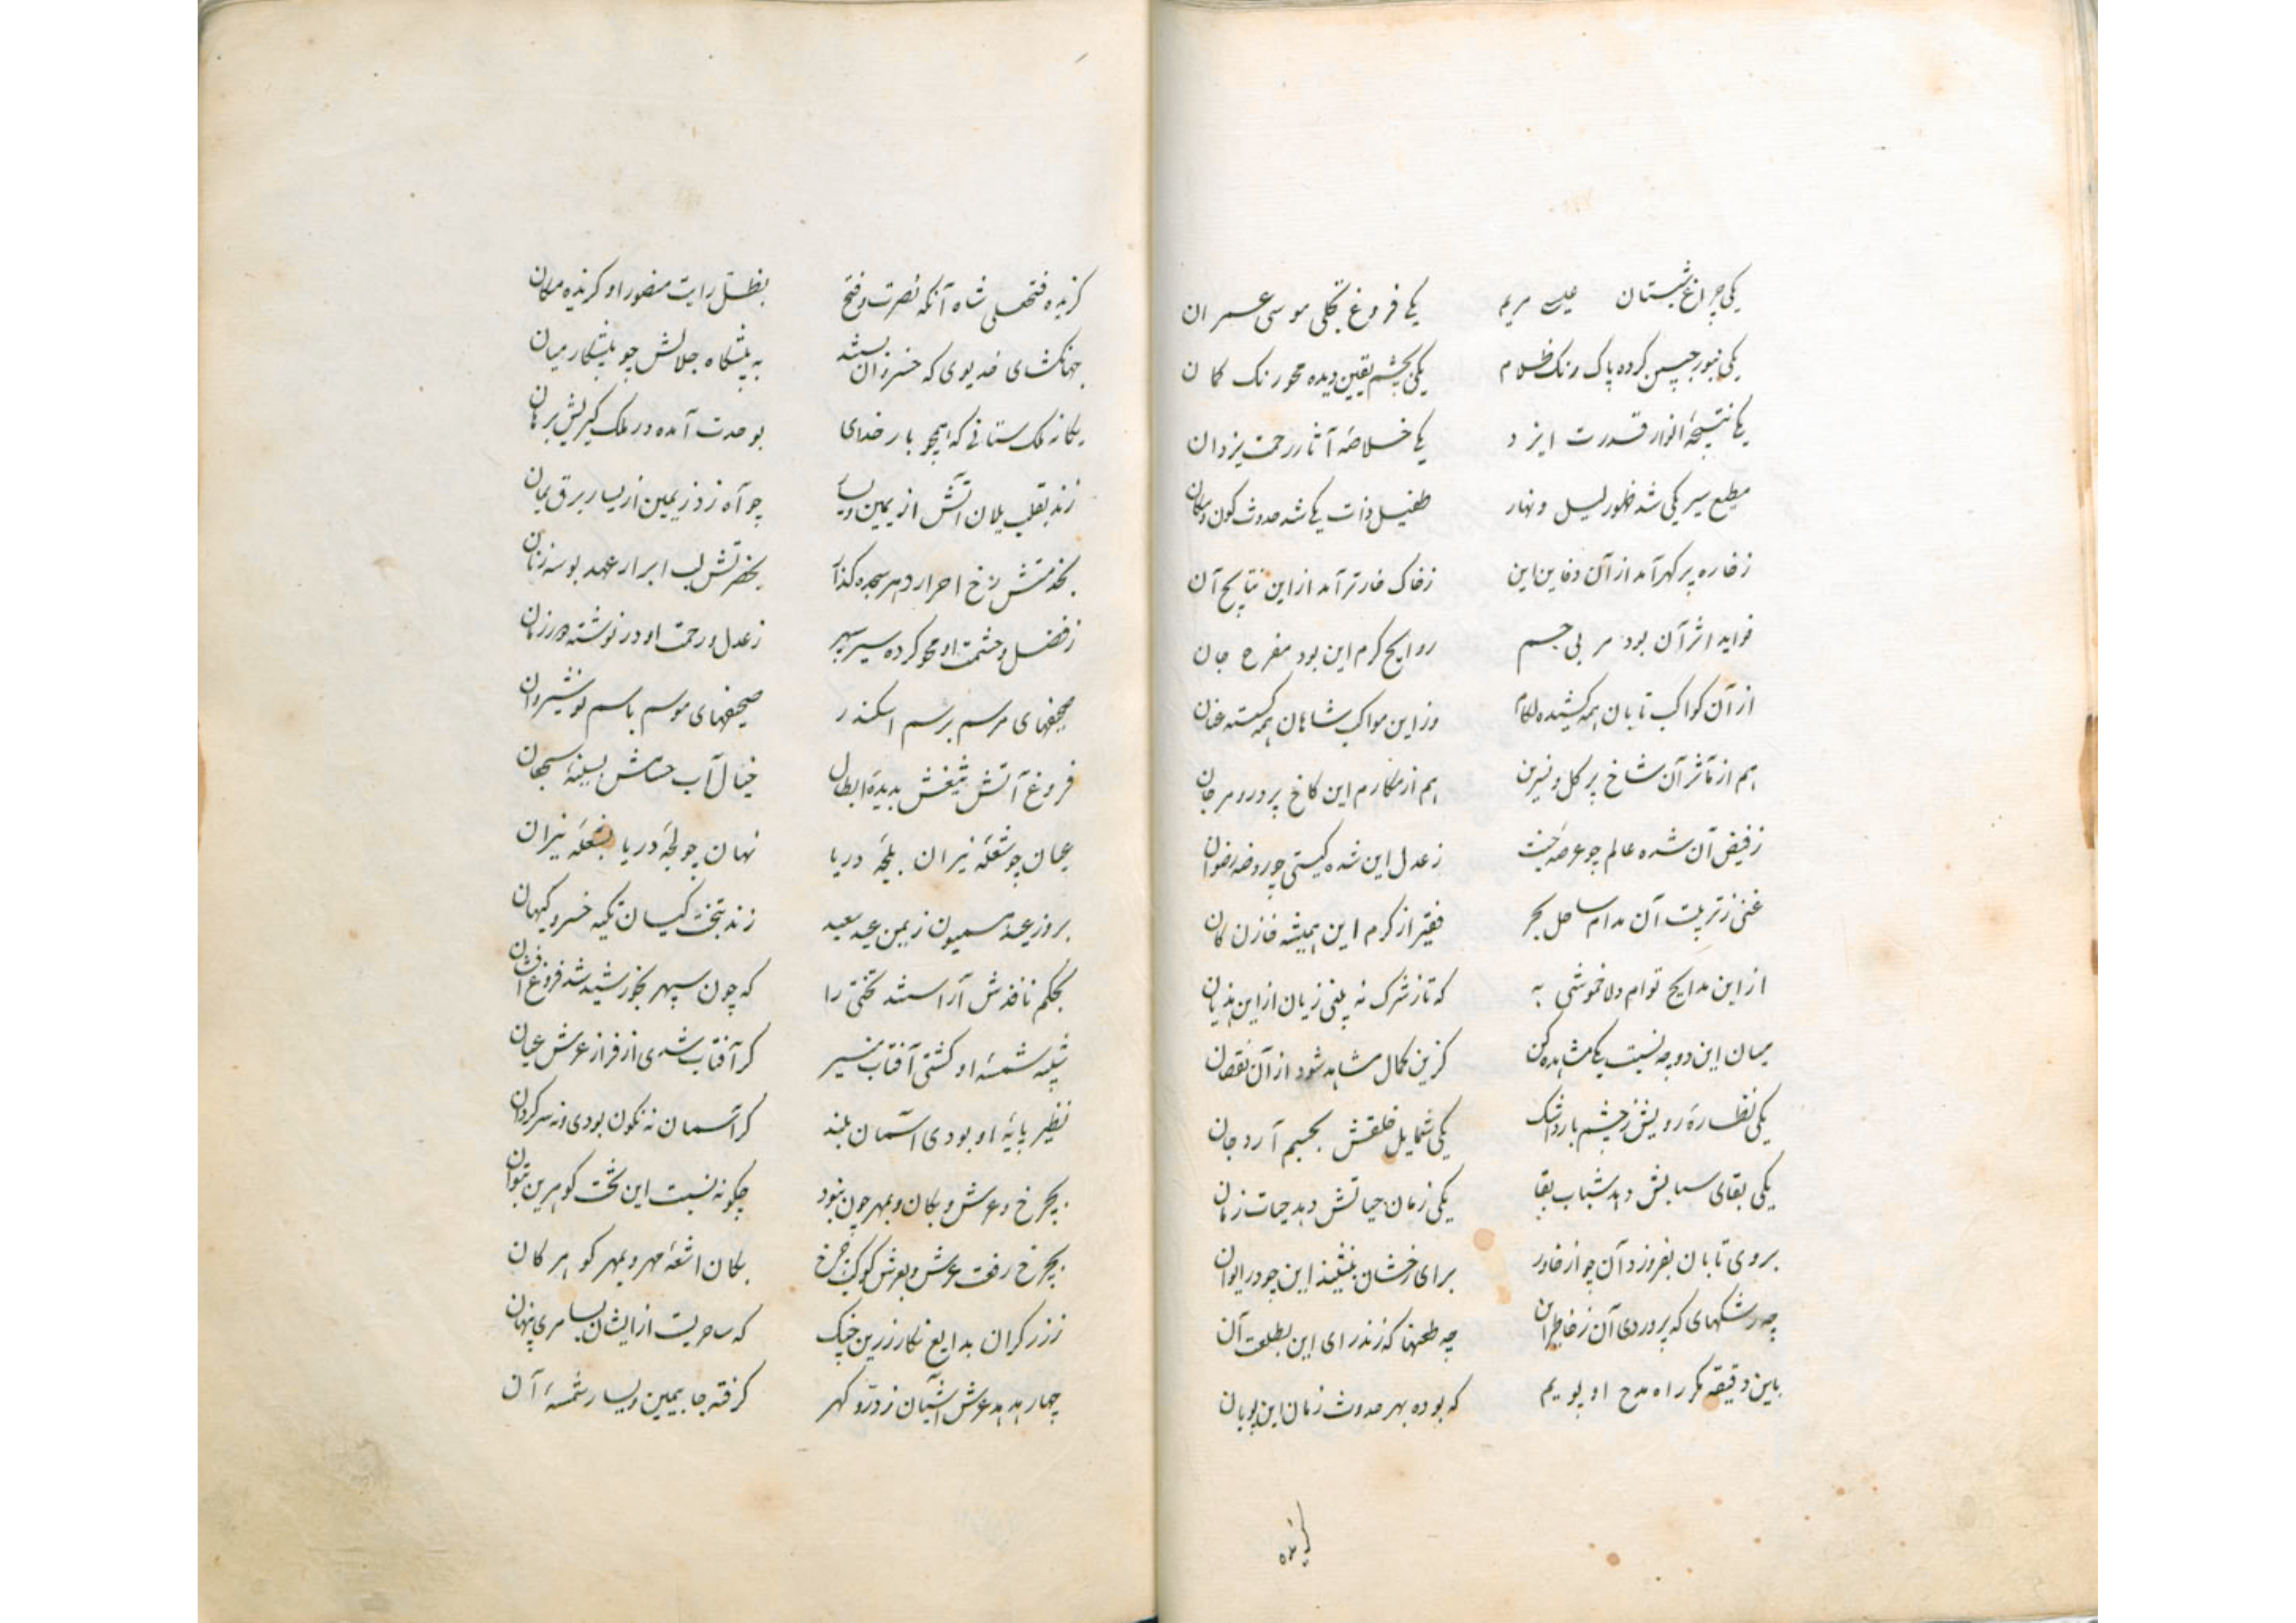 یکی چراغ شبستان عیسی مریم یکی فروغ تجلی موسی عمران
یکی بنور جبین کرده پاک رنک ظلام یکی بچشم یقین دیده محو رنک کمان
یکی نتیجهٔ انوار قدرت ایزد یکی خلاصهٔ آثار رحمت یزدان
مطیع سیر یکی شد ظهور لیل و نهار طفیل ذات یکی شد حدوث کون و مکان
زخاره پر کهر آمد از آن دفاین این زخاک خار تر آمد از این نتایج آن
فواید اثر آن بود مربی جسم روایح کرم این بود مفرح جان
از آن کواکب تابان همه کشیده لکام وز این مواکب شاهان همه کسسته عنان
هم از مآثر آن شاخ پر کل و نسرین هم از مکارم این کاخ پر در و مرجان
زفیض آن شده عالم چو عرصهٔ جنت زعدل این شده کیتی چو روضه رضوان
غنی زتربیت آن مدام ساحل بحر فقیر از کرم این همیشه خازن کان
از این مدایح توام دلا خموشی به که تا زشرک نه بینی زیان از این هذیان
میان این دو چه نسبت یکی مشاهده کن کزین کمال مشاهد شود از آن نقصان
یکی نظارهٔ رویش زچشم بارد اشک یکی شمایل خلقش بجسم آرد جان
یکی بقای سابش دهد شباب بقا یکی زمان حیاتش دهد حیات زمان
بروی تابان بفروزد آن چو از خاور برای رخشان بنشیند این چو در ایوان
چه رشکهای که پروردی آن زخاطر این چه طعنها که زند رای این بطلعت آن
باین دقیقه مکر راه مدح او پویم که بوده بهر حدوث زمان این پویان
کزیده
کزیده فتحعلی شاه آنکه نصرت و فتح بظل رایت منصور او کزیده مکان
جهانکشای خدیوی که خسروان بستند به پیشکاه جلالش چو پیشکار میان
یکانه ملک ستانی که همچو بار خدای بوحدت آمده در ملک کیریش برهان
زند بقلب یلان آتش از یمین و یسار چو آه زد زیمین از یسار برق یمان
بخدمتش رخ احرار دهر سجده کذار بحضرتش لب ابرار عهد بوسه زنان
زفضل و حشمت او محو کرده سیر سپهر زعدل و رحمت او در نوشته دور زمان
صحیفهای مرسم برسم اسکندر صحیفهای موسم باسم نوشیروان
فروغ آتش تیغش بدیدهٔ ابطال خیال آب حسامش بسینهٔ شجعان
عیان چو شعلهٔ نیران بلجهٔ دریا نهان چو لجهٔ دریا بشعلهٔ نیران
بروز عید همیون زیمن عید سعید زند بتخت کیان تکیه خسرو کیهان
بحکم نافذش آراستند تختی را که چون سپهر بخورشید شد فروغ افشان
شبیه شمسهٔ او کشتی آفتاب منیر کر آفتاب شدی از فراز عرش عیان
نظیر پایهٔ او بودی آسمان بلند کر آسمان نه نکون بودی و نه سرکردان
بچرخ و عرش و بکان و بمهر چون نبود چکونه نسبت این تخت کوهرین بتوان
بچرخ رفعت عرش و بعرش کوکب چرخ بکان اشعهٔ مهر و بمهر کوهر کان
ززرکران بدایع نکار زرین چنک که ساحریست از ایشان بسامری پنهان
چهار هدهد عرش آشیان زدر و کهر کرفته جا بیمین و یسار شمسهٔ آن